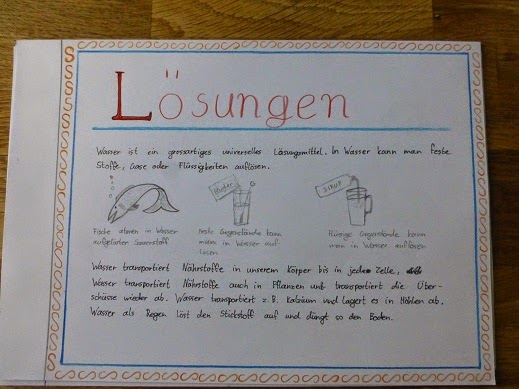 Lösungen
Wasser ist ein grossartiges universelles Lösungsmittel. In Wasser kann man feste
Stoffe, Gase oder Flüssigkeiten auflösen.
Zucker
Sirup
Fische atmen in Wasser
aufgelösten Sauerstoff
Feste Gegenstände kann
man in Wasser auf
lösen
Flüssige Gegenstände kann
man in Wasser auflösen
Wasser transportiert Nährstoffe in unserem Körper bis in jede Zelle,
Wasser transportiert Nährstoffe auch in Pflanzen und transportiert die Über-
schüsse wieder ab. Wasser transportiert z.B. Kalzium und lagert es in Höhlen ab.
Wasser als Regen löst den Stickstoff auf und düngt so den Boden.